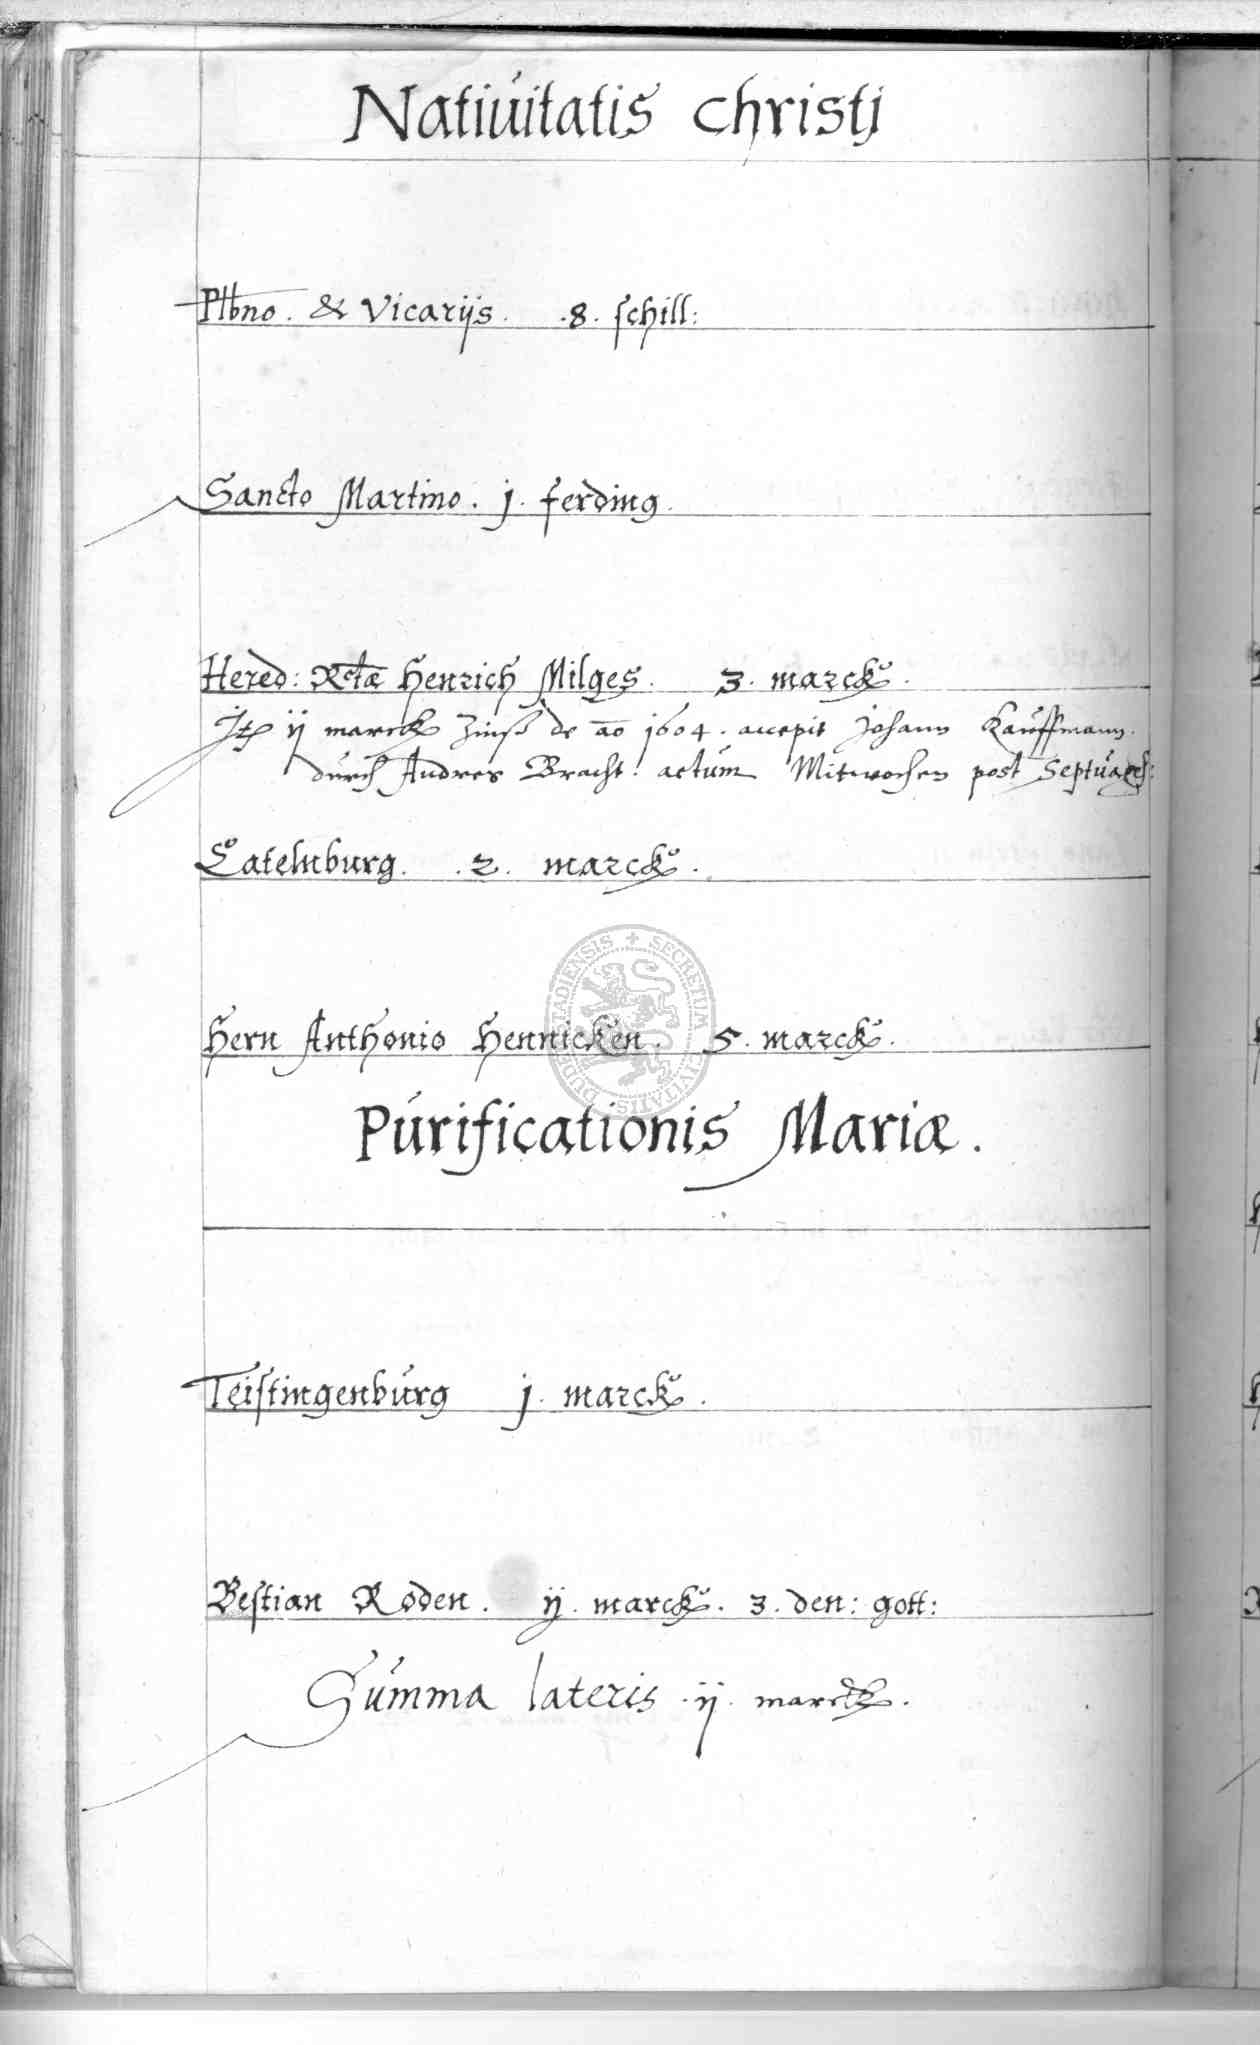 Natiuitatis Christj
Plbno. & Vicarijs. .8. schill:
Sancto Martino. j. ferding.
Hered: Rctæ Henrich Milges. 3. marck.
Jtem ij marck Zinß de ao 1604. accepit Johann Kauffmann.
durch Andres Bracht. actum Mitwochen post Septuages:
Catelnburg. .2. marck.
Hern Anthonio Hennicken. 5. marck.
SECRETUM CIVITATIS DUDERSTADIENSIS
Purificationis Mariæ.
Teistingenburg j. marck.
Bestian Roden. ij. marck. 3. den: gott:
Summa lateris .ij. marck.